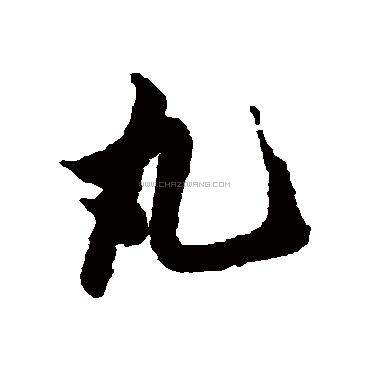 丸
WWW.CHAZIWANG.COM